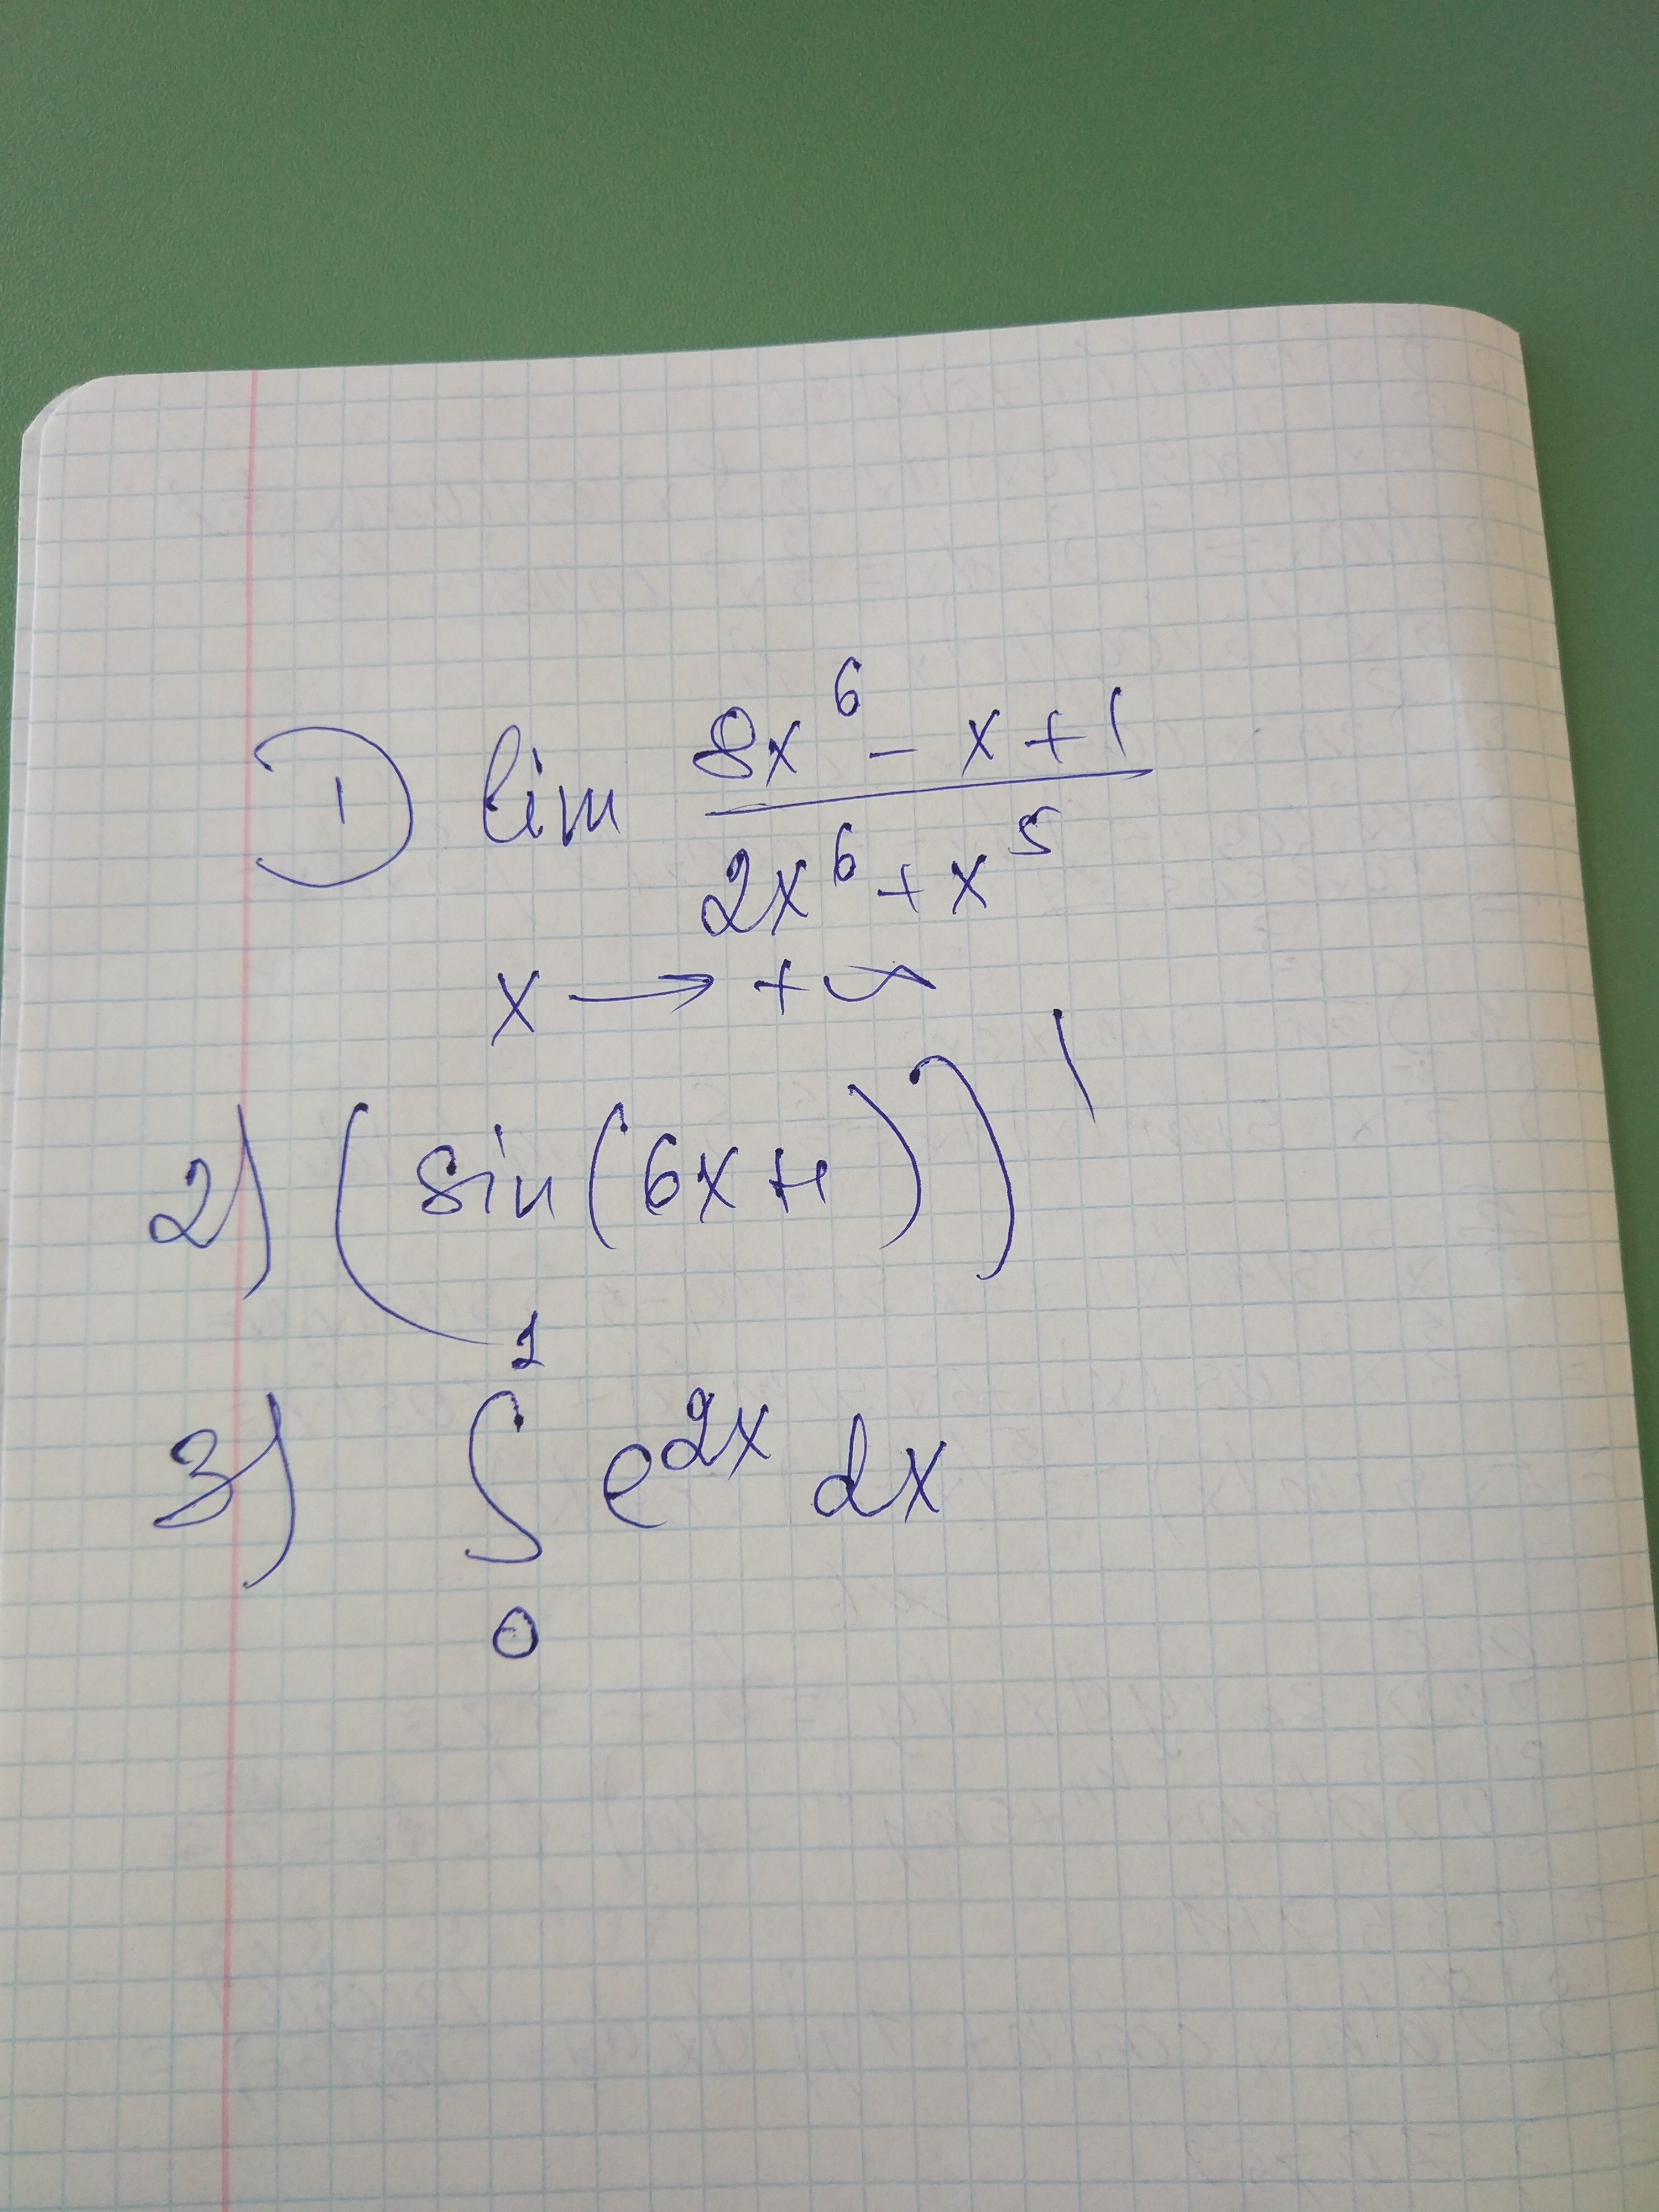 1) lim (8x⁶ - x + 1)/(2x⁶ + x⁵)
x → +∞
2) (sin(6x+1))'
3) ∫₀¹ e²ˣ dx